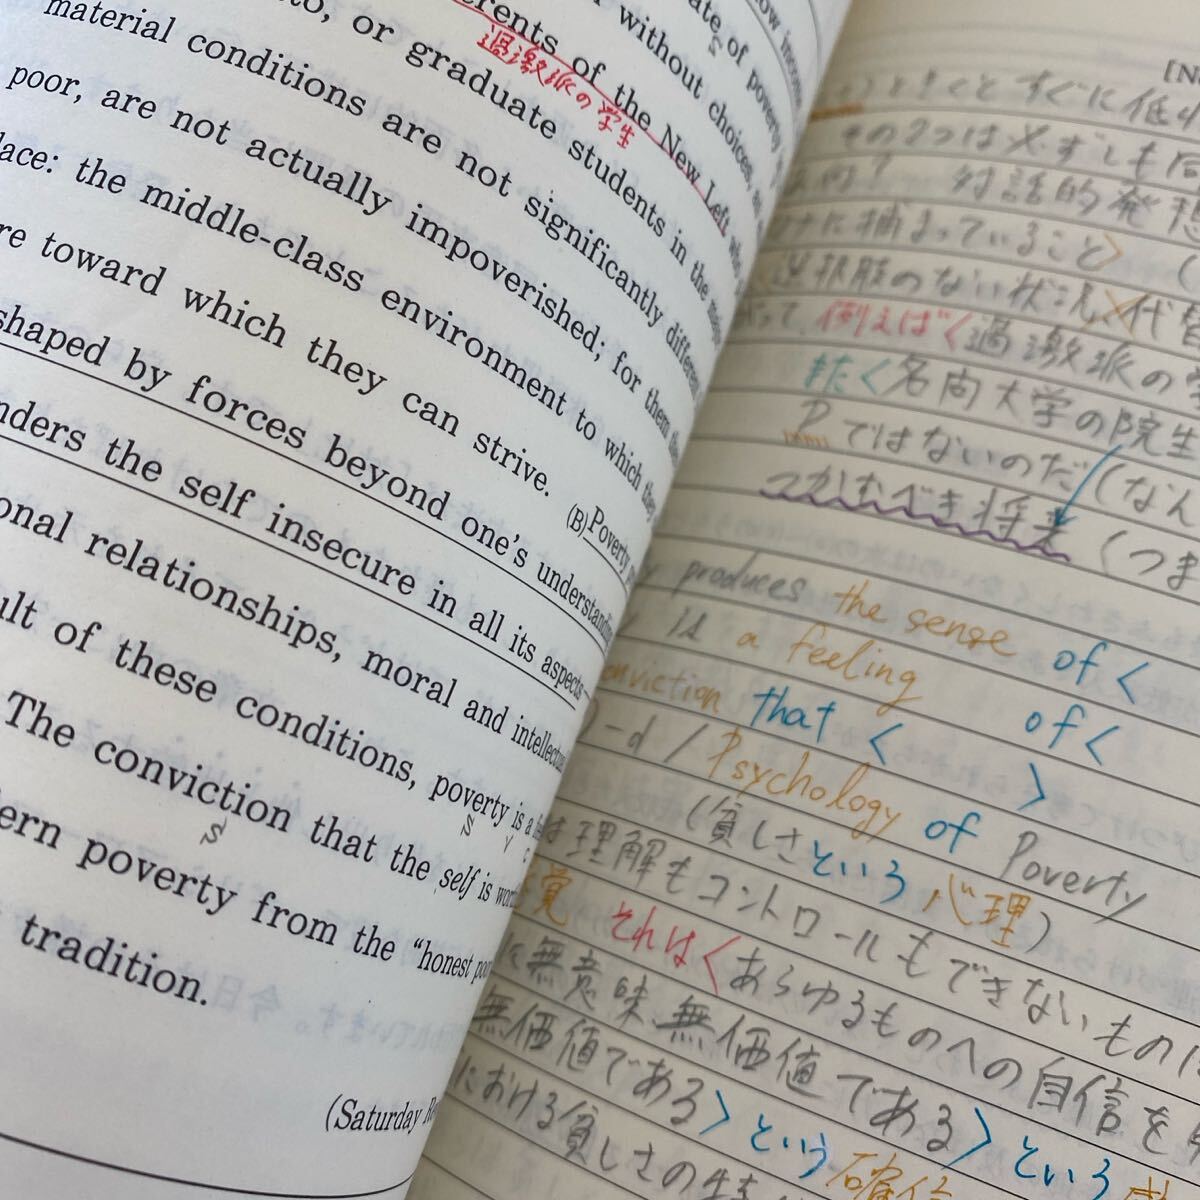 ow
ate of poverty
without choices, as
erents of the New Left
過激派の学生
to, or graduate students in the
material conditions are not significantly different
poor, are not actually impoverished; for them
lace: the middle-class environment to which they
re toward which they can strive. (B)Poverty
shaped by forces beyond one's understanding
nders the self insecure in all its aspects
onal relationships, moral and intellectual
ult of these conditions, poverty is a
S V C
The conviction that the self is
S
ern poverty from the "honest poor
tradition.
(Saturday Re
[N
ときくと すぐに 低
その2つは必ずしも同
対話的発想
に捕まっていること〉 (
択肢のない状況、代替
って、例えば〈過激派の学
また〈名門大学の院生
Pではないのだ (なん
つかむべき将来〈つま
produces the sense of〈
is a feeling of〈
conviction that 〈 〉
-d / Psychology of Poverty
(貧しさという心理)
は理解もコントロールもできないもの
覚 それは〈あらゆるものへの自信を
に無意味、無価値である〉という
無価値である〉という確信
における貧しさの